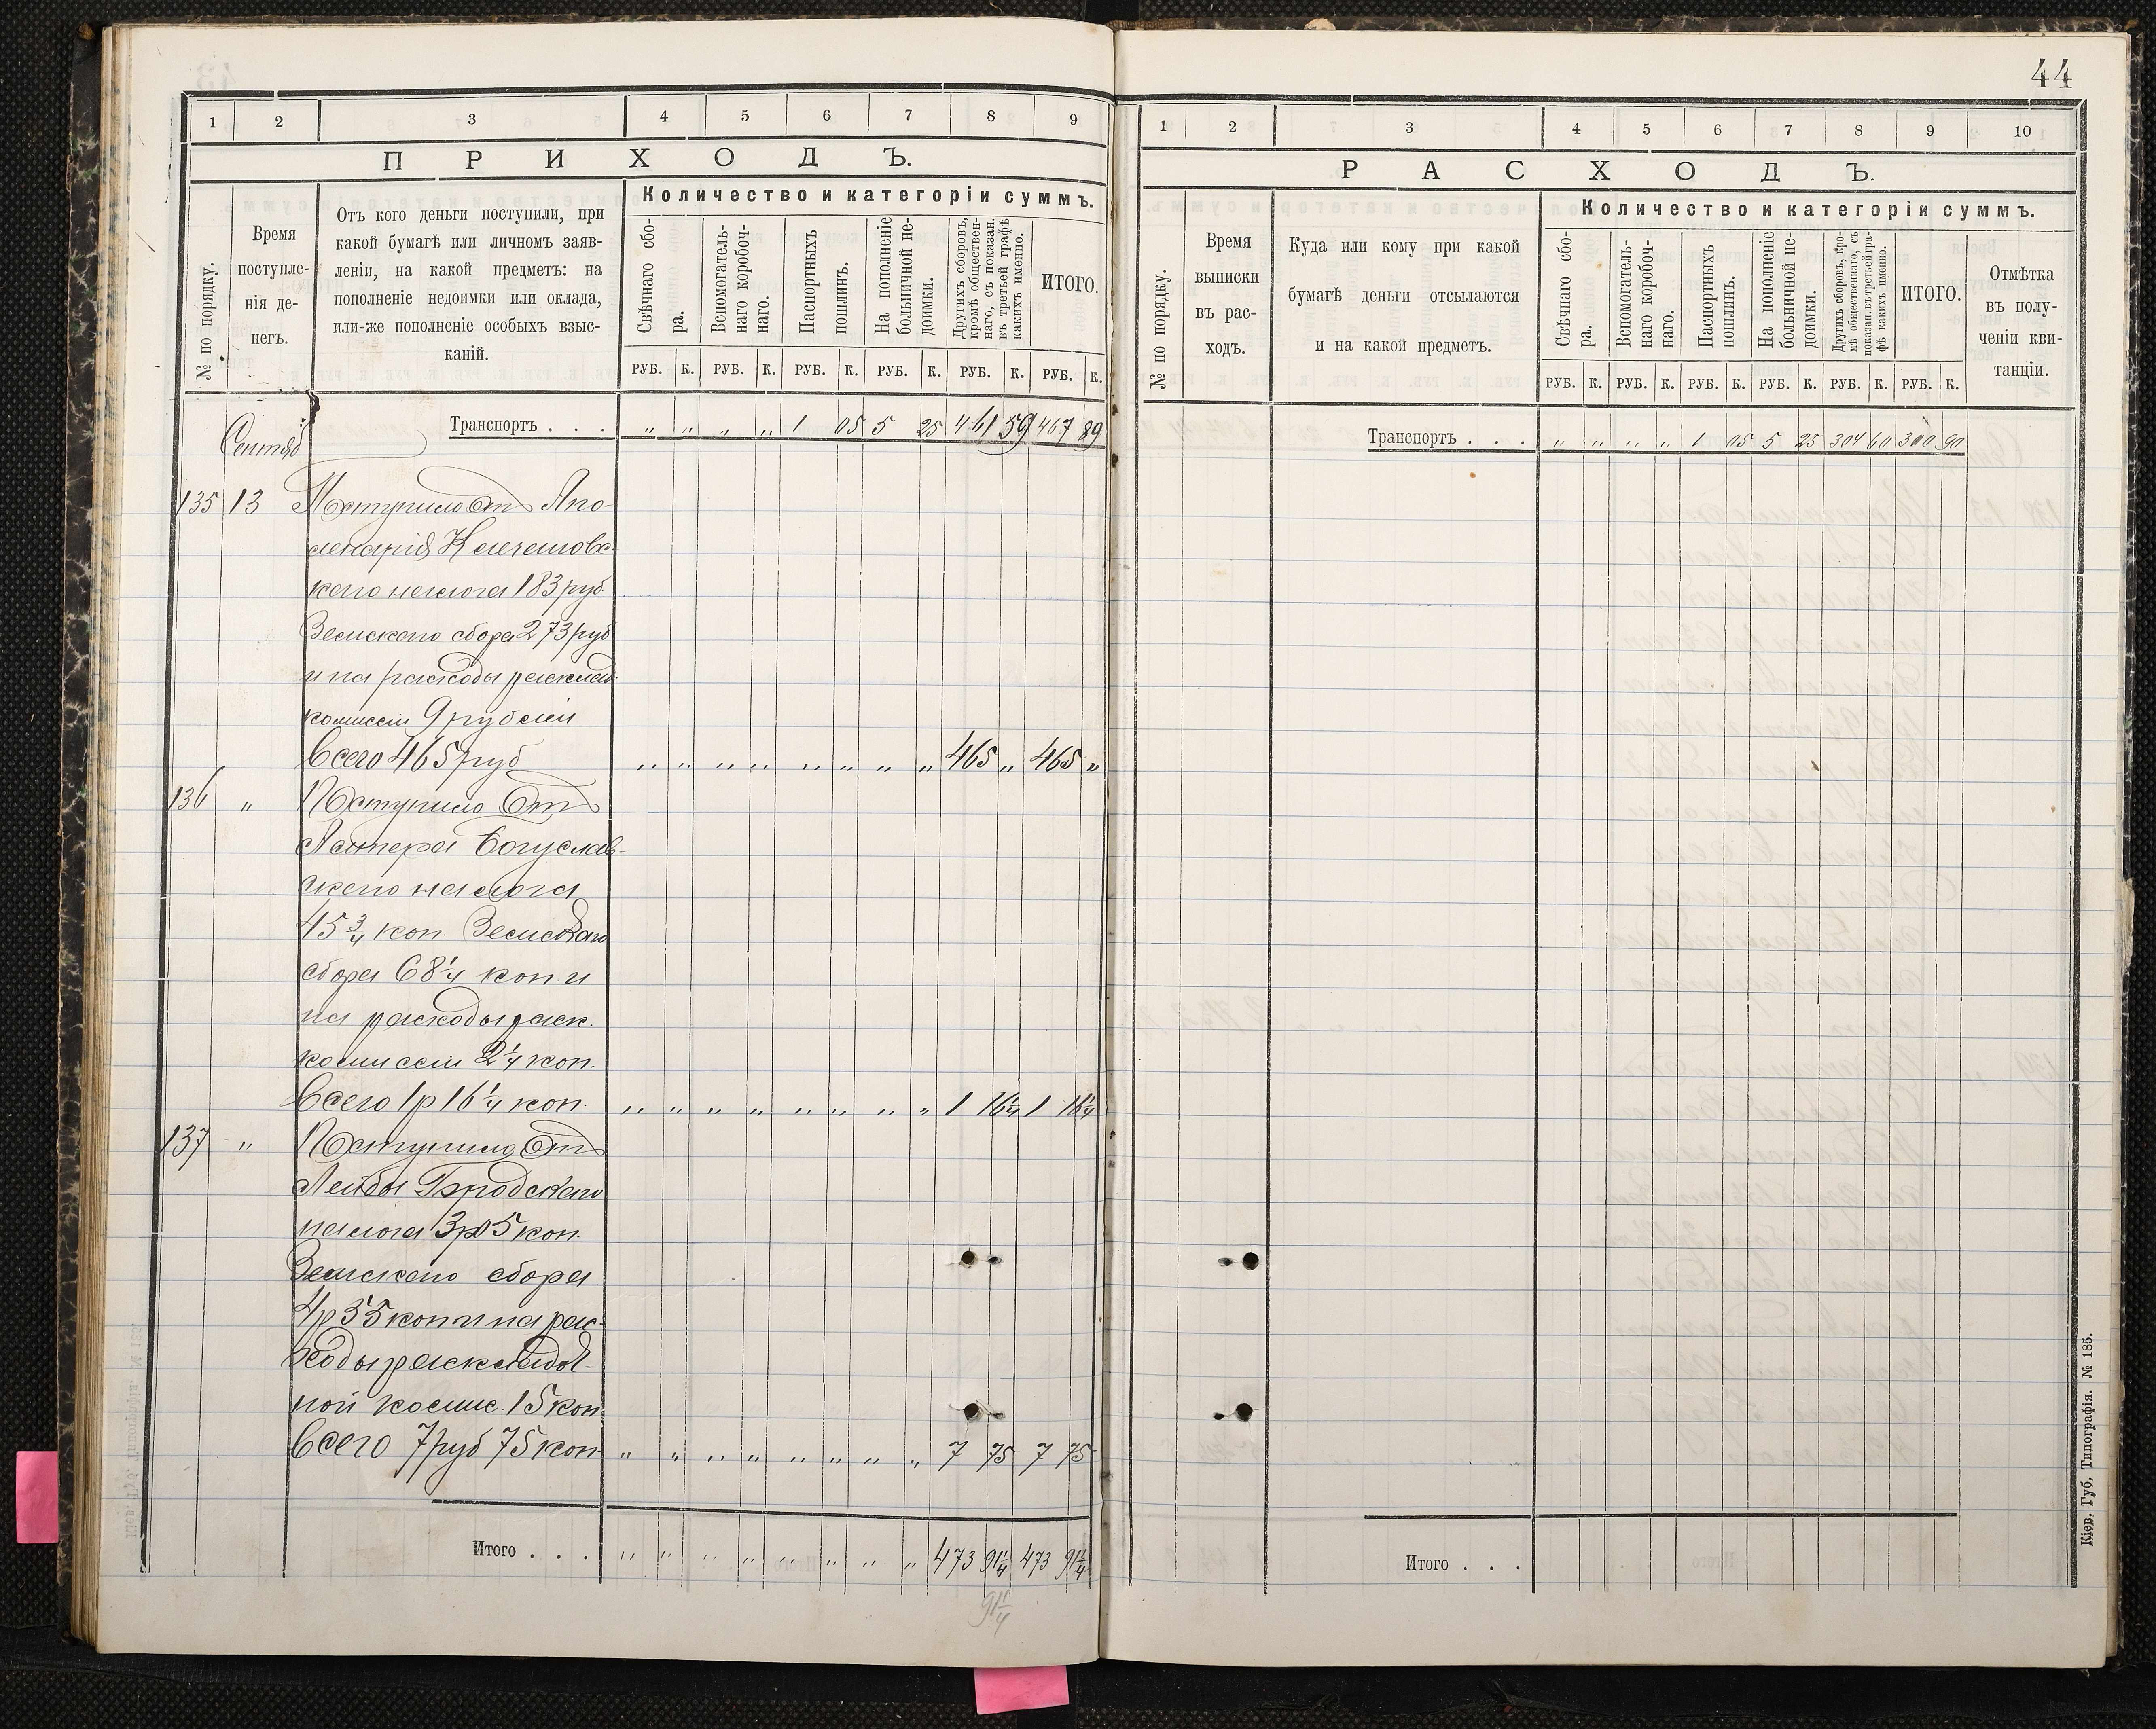 44
1 2 3 4 5 6 7 8 9
ПРИХОДЪ.
№ по порядку.
Время
поступле-
нія де-
негъ.
Отъ кого деньги поступили, при
какой бумагѣ или личномъ заяв-
леніи, на какой предметъ: на
пополненіе недоимки или оклада,
или-же пополненіе особыхъ взыс-
каній.
Количество и категоріи суммъ.
Свѣчнаго сбо-
ра.
Вспомогатель-
наго коробоч-
наго.
Паспортныхъ
пошлинъ.
На пополненіе
больничной не-
доимки.
Другихъ сборовъ,
кромѣ обществен-
наго, съ показан.
въ третьей графѣ
какихъ именно.
ИТОГО.
РУБ. К. РУБ. К. РУБ. К. РУБ. К. РУБ. К. РУБ. К.
Транспортъ . . . „ „ „ „ 1 05 5 25 461 59 467 89
Сентяб
135 13 Поступило отъ Апо-
кого налога 183 руб
Земскаго сбора 273 руб
и на расходы расклад.
комиссіи 9 рублей
Всего 465 руб „ „ „ „ „ „ „ „ 465 „ 465 „
136 „ Поступило Отъ
Богуслав-
скаго налога
45 3/4 коп. Земскаго
сбора 68 1/4 коп. и
на расходы раск.
комиссіи 2 1/4 коп.
Всего 1р 16 1/4 коп. „ „ „ „ „ „ „ „ 1 16 1/4 1 16 1/4
137 „ Поступило Отъ
Лейбы Бродскаго
налога 3р 5 коп.
Земскаго сбора
4р 55 коп и на рас-
ходы расклодоч-
ной комис. 15 коп.
Всего 7 руб 75 коп. „ „ „ „ „ „ „ „ 7 75 7 75
Итого . . . „ „ „ „ „ „ „ „ 473 91 1/4 473 91 1/4
91 1/4
1 2 3 4 5 6 7 8 9 10
РАСХОДЪ.
№ по порядку.
Время
выписки
въ рас-
ходъ.
Куда или кому при какой
бумагѣ деньги отсылаются
и на какой предметъ.
Количество и категоріи суммъ.
Свѣчнаго сбо-
ра.
Вспомогатель-
наго коробоч-
наго.
Паспортныхъ
пошлинъ.
На пополненіе
больничной не-
доимки.
Другихъ сборовъ, кро-
мѣ общественнаго, съ
показан. въ третьей гра-
фѣ какихъ именно.
ИТОГО.
Отмѣтка
въ полу-
ченіи кви-
танціи.
РУБ. К. РУБ. К. РУБ. К. РУБ. К. РУБ. К. РУБ. К.
Транспортъ . . . „ „ „ „ 1 05 5 25 304 60 300 90
Итого . . .
Кіев. Губ. Типографія. № 185.